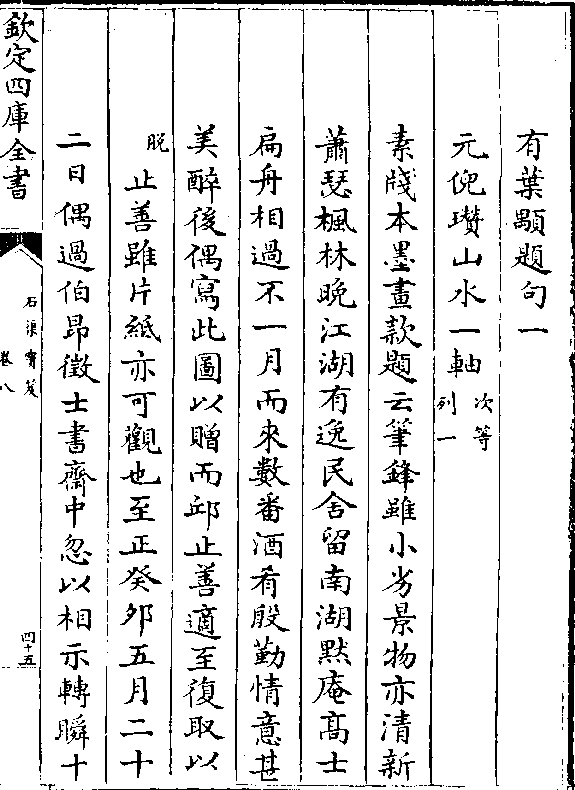 有葉顒題句一
元倪瓚山水一軸次等列一
素牋本墨畫款題云筆鋒雖小劣景物亦清新
蕭瑟楓林晚江湖有逸民舍留南湖黙庵髙士
扁舟相過不一月而來數番酒肴殷勤情意甚
美醉後偶寫此圖以贈而邱止善適至復取以
脱止善雖片紙亦可觀也至正癸夘五月二十
二日偶過伯昂徵士書齋中忽以相示轉瞬十
欽定四庫全書
石渠寶笈
卷八
四十五